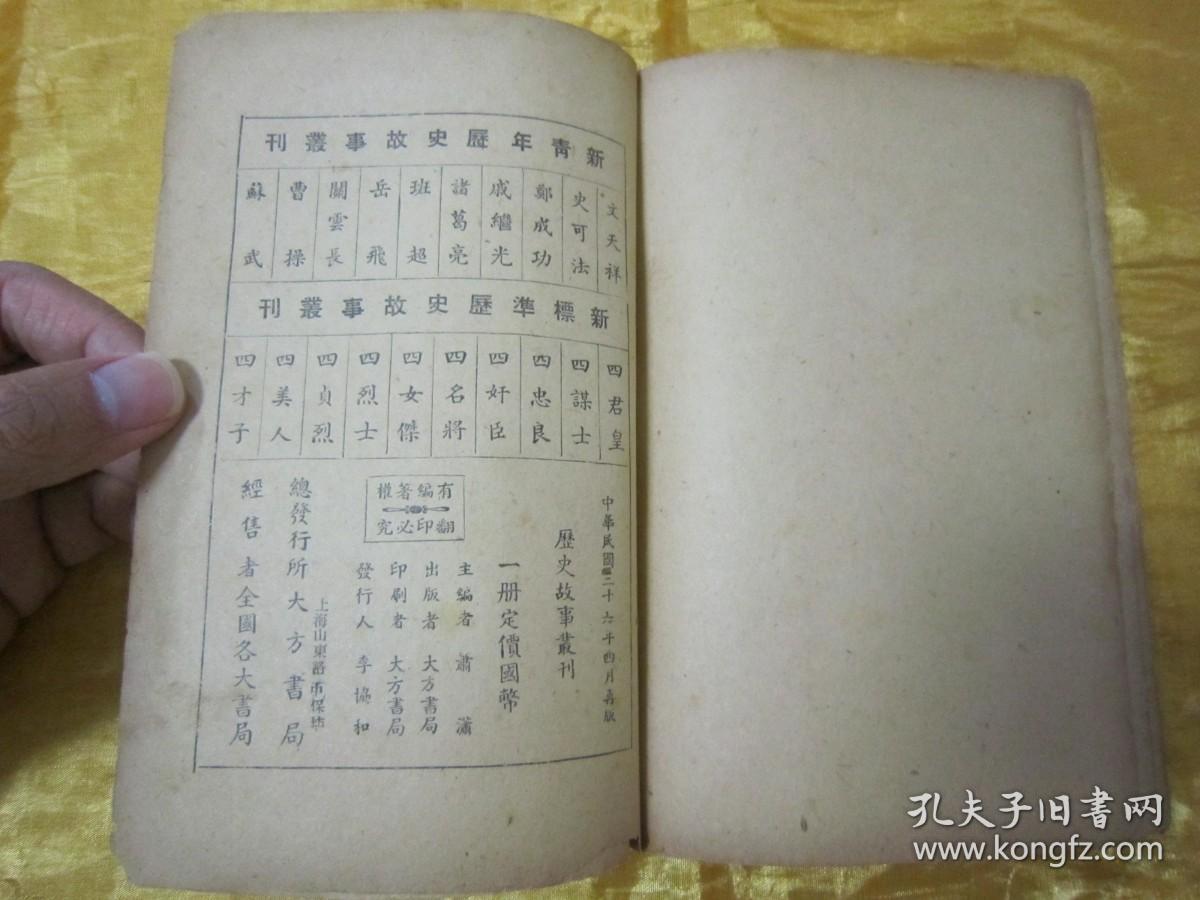 新青年歷史故事叢刊
文天祥
史可法
鄭成功
戚繼光
諸葛亮
班超
岳飛
關雲長
曹操
蘇武
新標準歷史故事叢刊
四君皇
四謀士
四忠良
四奸臣
四名將
四女傑
四烈士
四貞烈
四美人
四才子
中華民國二十六年四月再版
歷史故事叢刊
一册定價國幣
有編著權
翻印必究
主編者 蕭瀟
出版者 大方書局
印刷者 大方書局
發行人 李協和
上海山東路
總發行所大方書局
經售者全國各大書局
孔夫子旧书网
www.kongfz.com